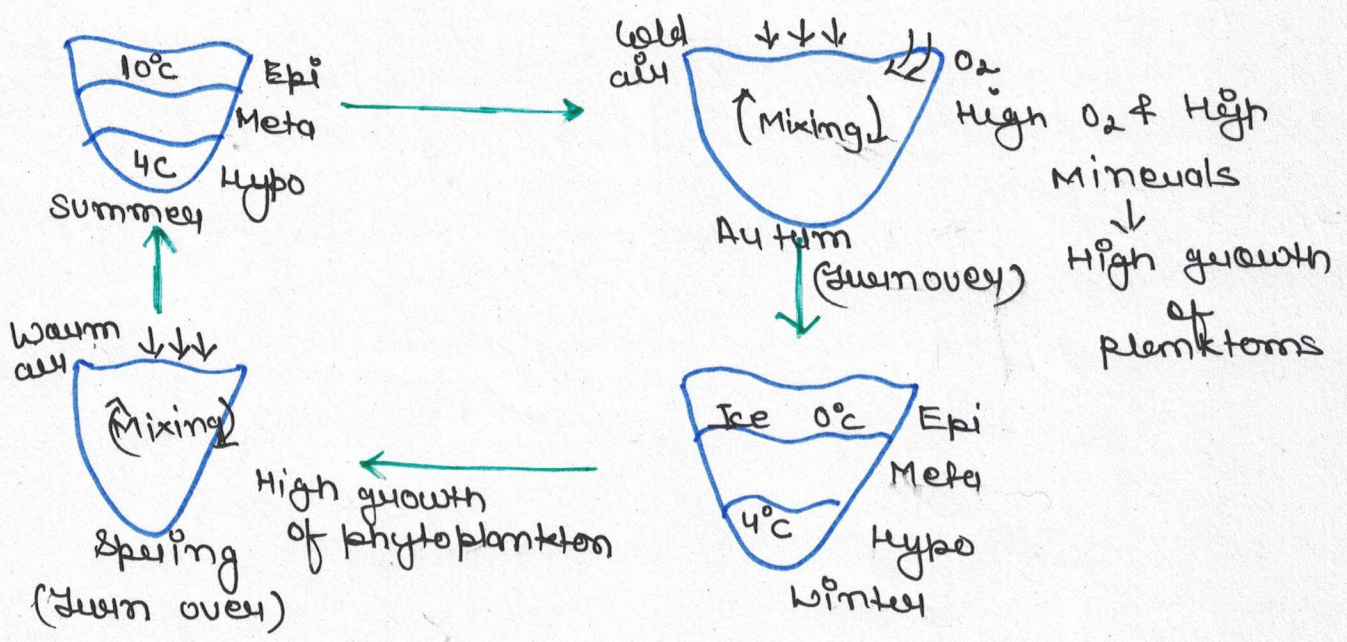 10°C
Epi
Meta
4C
Hypo
Summer
Cold
air
O₂
(Mixing)
High O₂ &
Minerals
↓
High growth
of
planktons
Autum
(Turnover)
Warm
air
(Mixing)
Spring
(Turn over)
High growth
of phytoplankton
Ice 0°C
Epi
Meta
4°C
Hypo
Winter